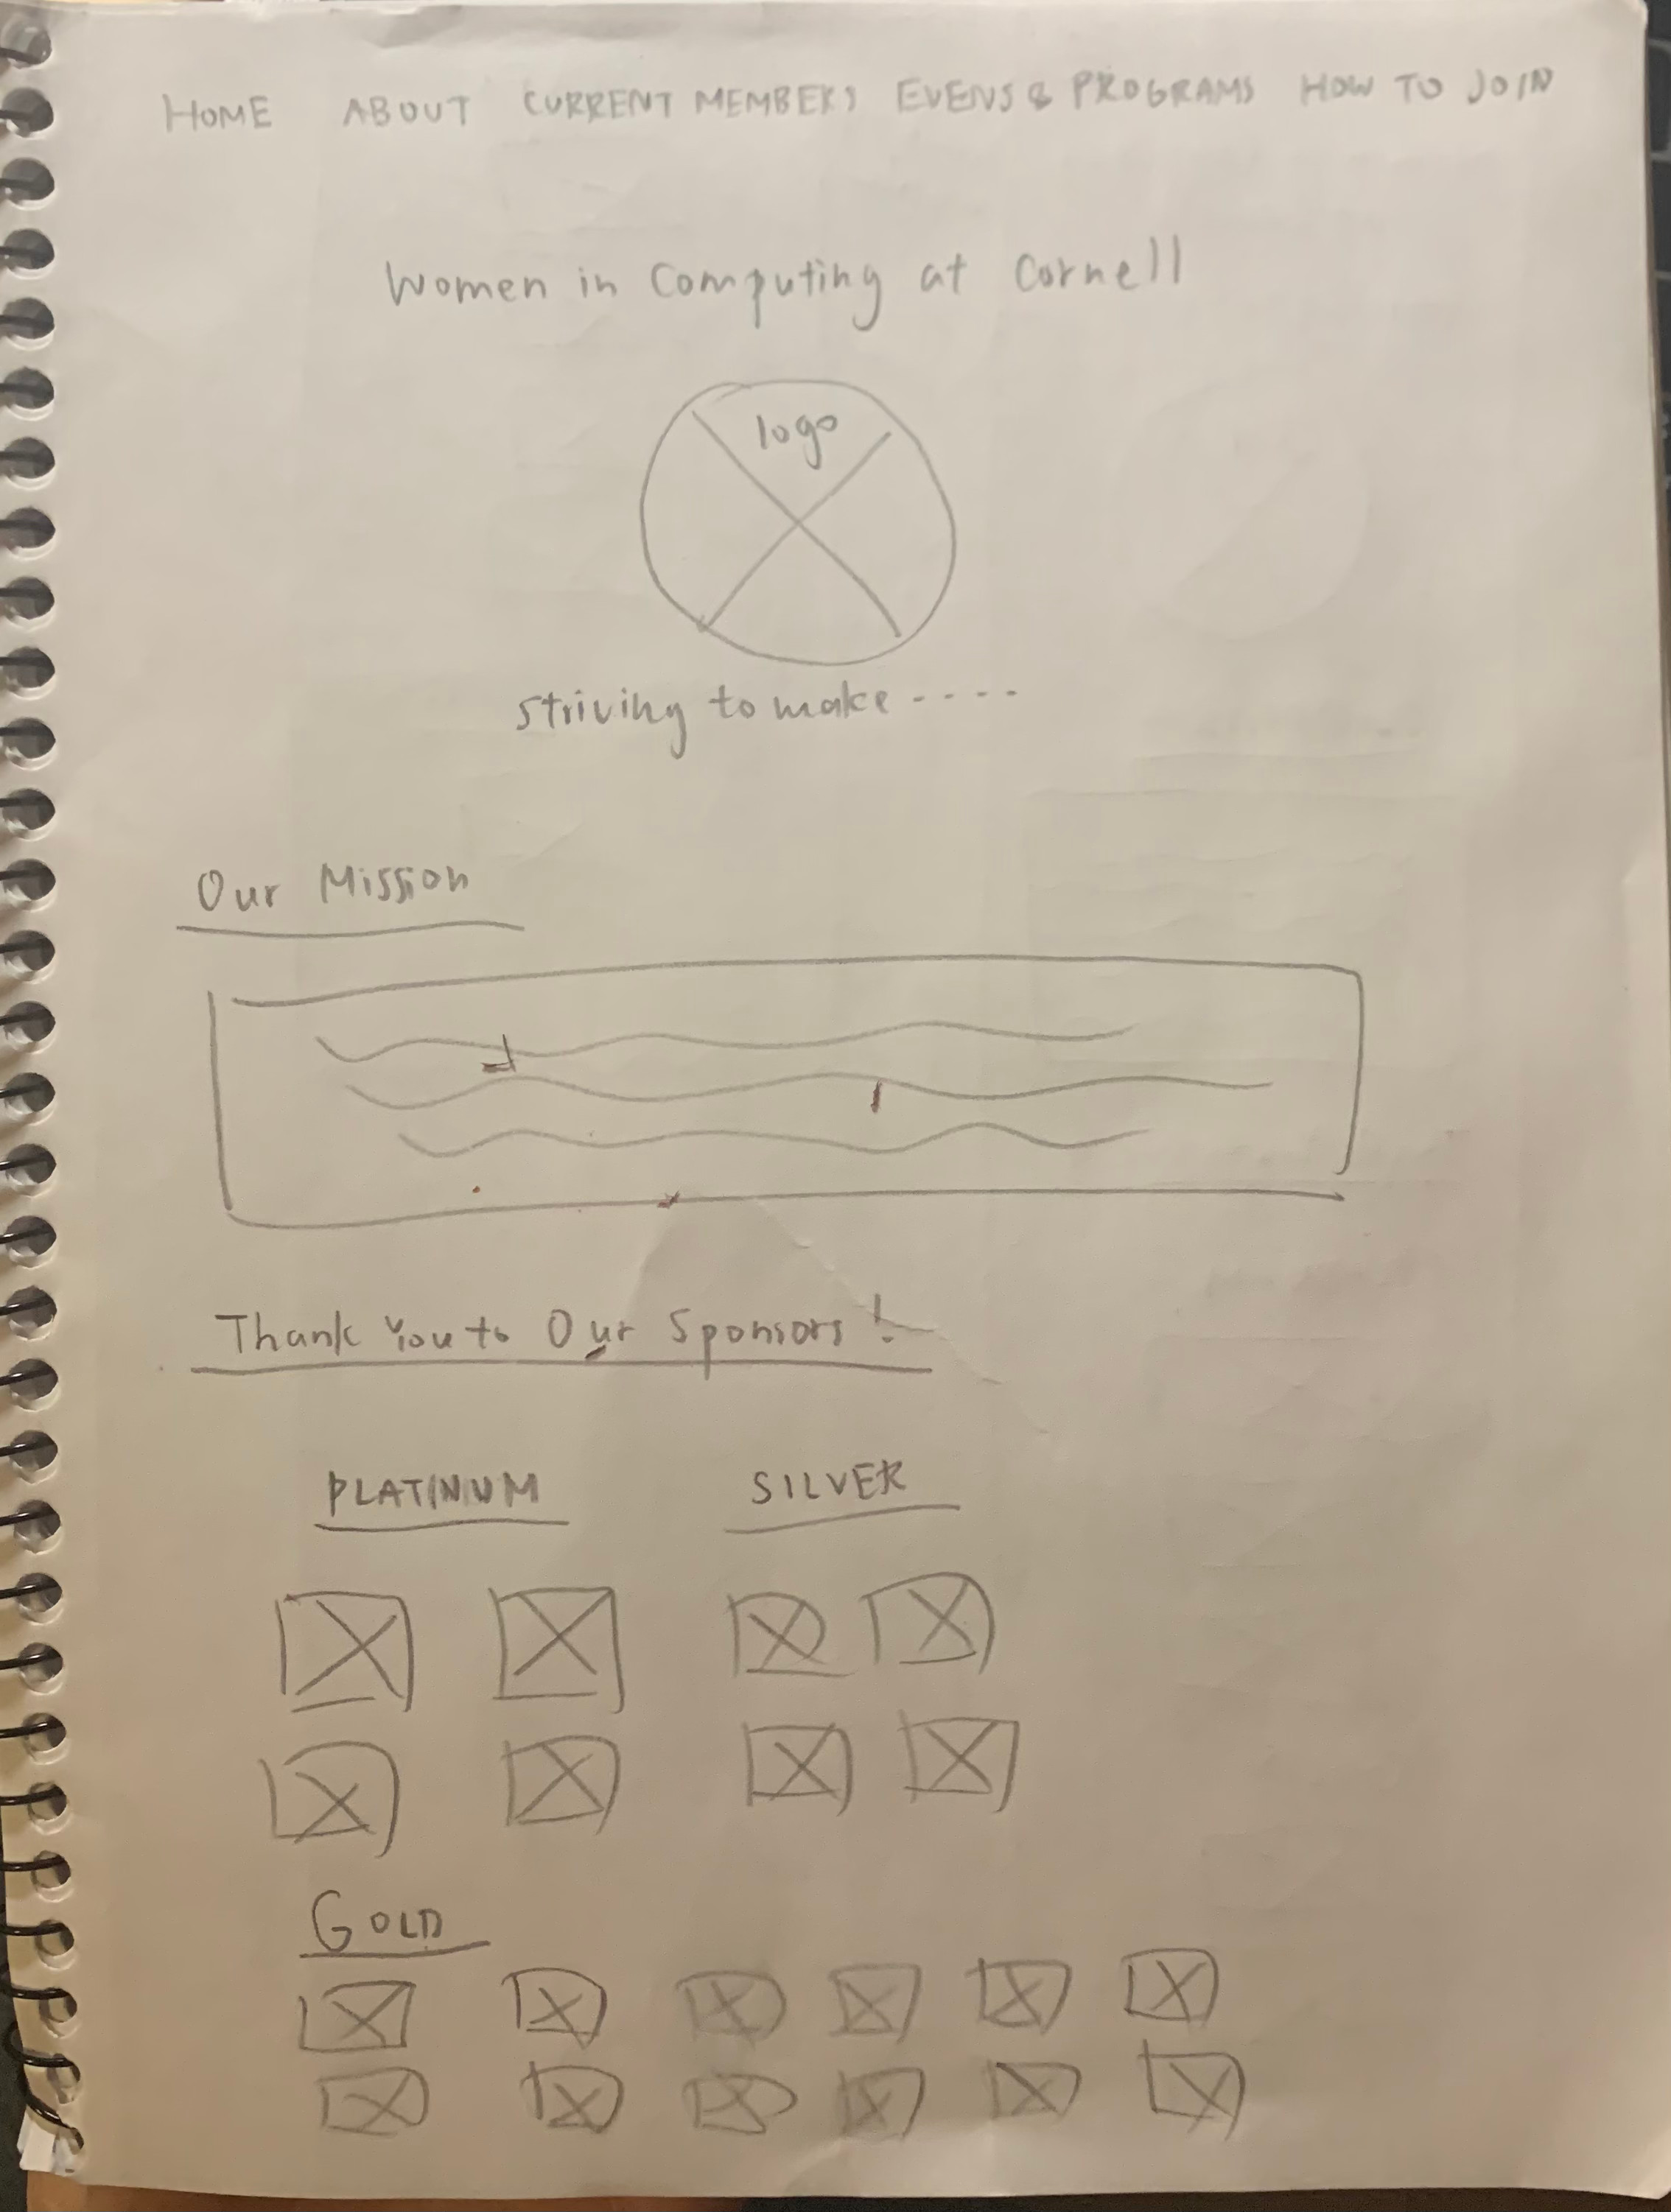 HOME ABOUT CURRENT MEMBERS EVENS & PROGRAMS HOW TO JOIN
Women in Computing at Cornell
logo
striving to make ----
Our Mission
Thank You to Our Sponsors!
PLATINUM SILVER
GOLD